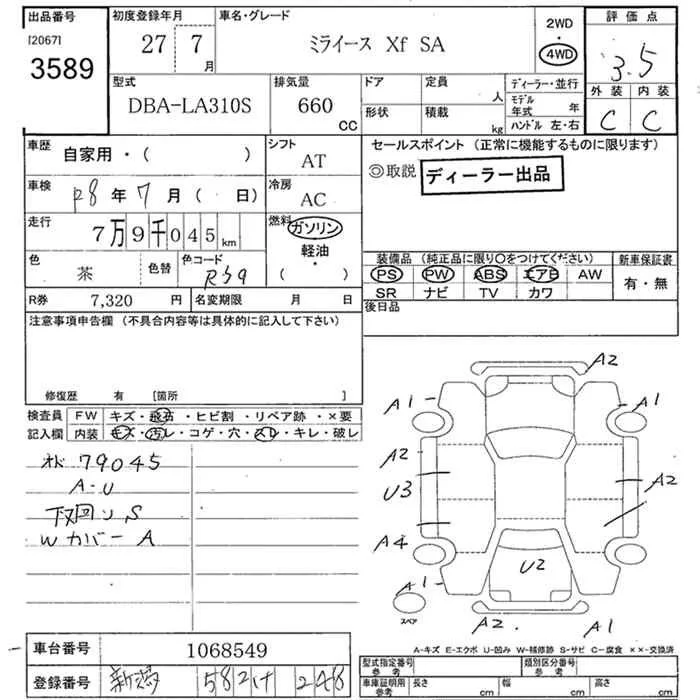 出品番号
[2067]
3589
初度登録年月
27年 7月
車名・グレード
ミライース Xf SA
2WD
・
4WD
評価点
3.5
外装 内装
C C
型式
DBA-LA310S
排気量
660
CC
ドア
定員
人
形状
積載
kg
ディーラー・並行
モデル年式 年
ハンドル 左・右
車歴
自家用・( )
シフト
AT
セールスポイント (正常に機能するものに限ります)
◎取説 ディーラー出品
車検
R8年 7月( 日)
冷房
AC
走行
7万9千045km
燃料
ガソリン
軽油・
( )
色
茶
色替
色コード
R59
装備品 (純正品に限り○をつけてください)
PS PW ABS エアB AW
SR ナビ TV カワ
新車保証書
有・無
R券 7,320 円
名変期限 月 日
後日品
注意事項申告欄 (不具合内容等は具体的に記入して下さい)
修復歴 有 [箇所 ]
検査員
記入欄
FW キズ・飛石・ヒビ割・リペア跡・×要
内装 キズ・汚レ・コゲ・穴・スレ・キレ・破レ
79045
A-U
下回り S
Wカバー A
A2
A1 A1
A2
U3
A2
A4
U2
A1
A2
A1
スペア
車台番号 1068549
登録番号 新潟 582 け 248
A-キズ E-エクボ U-凹み W-補修跡 S-サビ C-腐食 ××-交換済
型式指定番号
参考
類別区分番号
参考
車庫証明用
参考
長さ cm
幅 cm
高さ cm